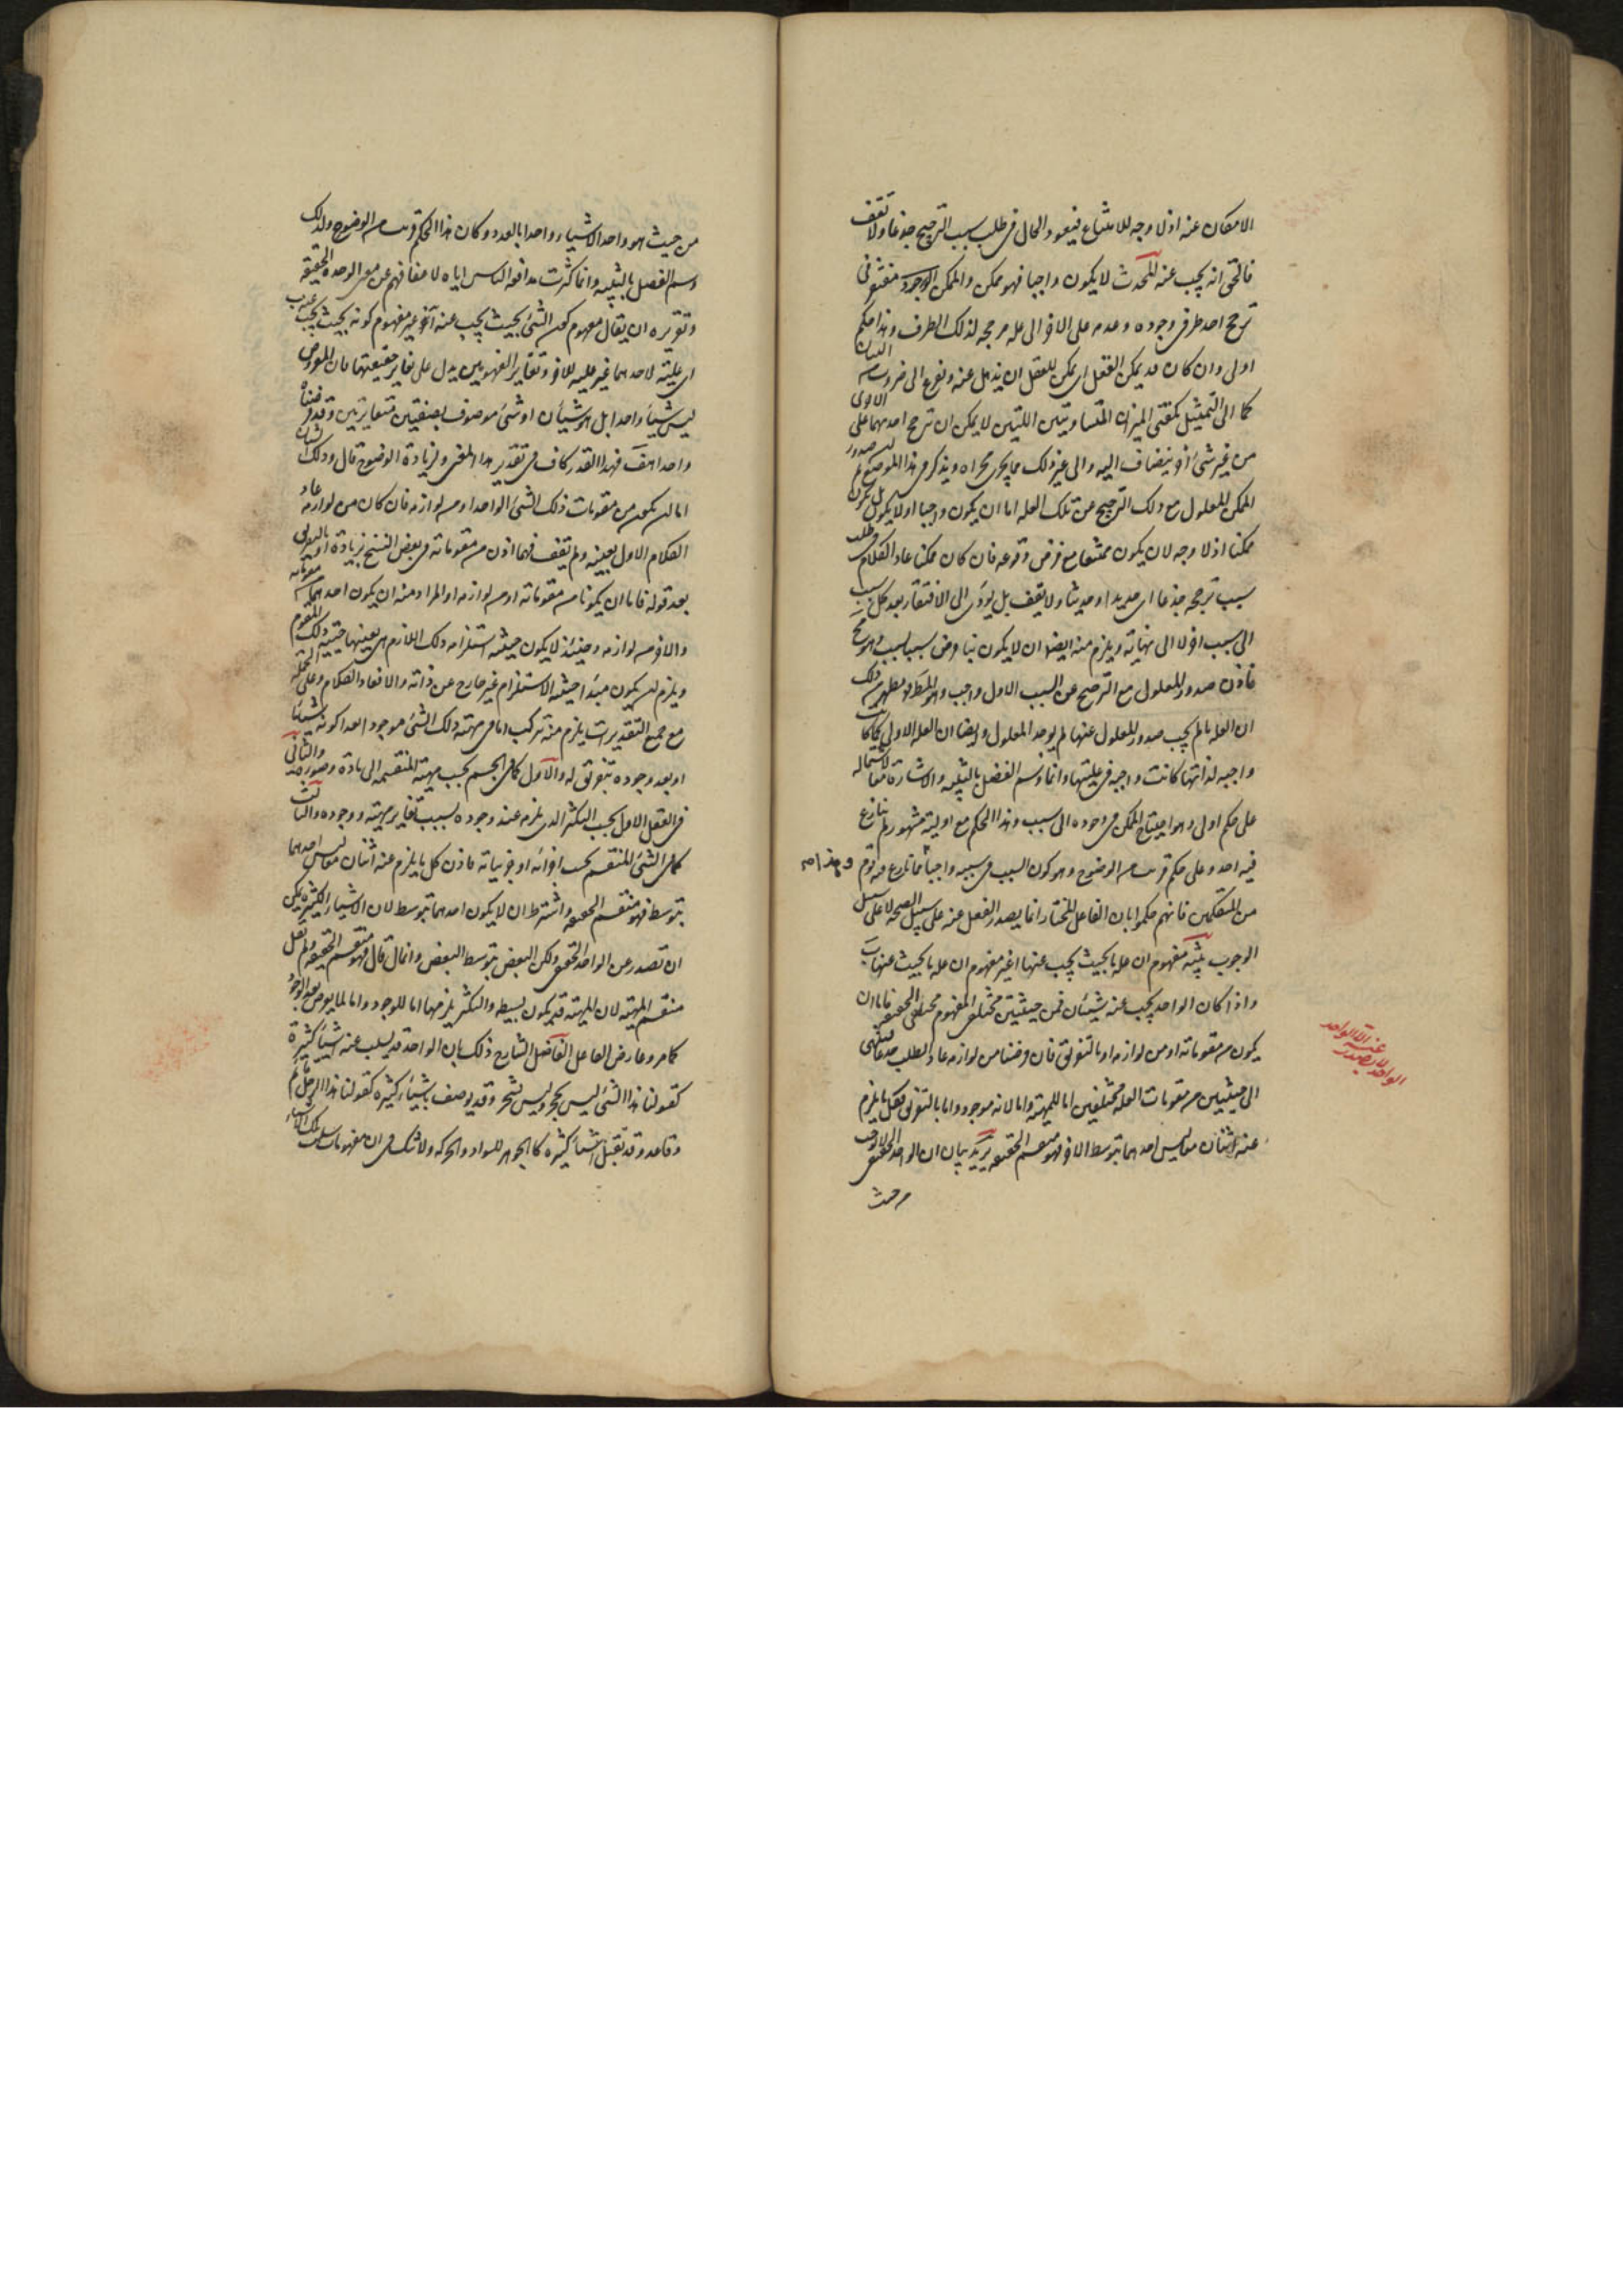 الامكان عنه اذ لا وجه للامتناع فيعود الحال فى طلب سبب الترجيح جذعا ولا تقف
فالحق انه يجب عنه المحدث لا يكون واجبا فهو ممكن والممكن الموجود مفتقر فى
ترجح احد طرفى وجوده وعدمه على الاخر الى عله مرجحه لذلك الطرف وهذا حكم
اولى وان كان قد يمكن العقل اى يمكن للعقل ان يذهل عنه ويفزع الى ضروب من البيان
كما الى التمثيل بكفتى الميزان المتساويتين اللتين لا يمكن ان ترجح احديهما على الاخرى
من غير شئ اخر ينضاف اليها والى غير ذلك مما يجرى مجراه ويذكر فى هذا الموضع ثم صدور
الممكن المعلول مع ذلك الترجيح عن تلك العله اما ان يكون واجبا او لا يكون بل يكون
ممكنا اذ لا وجه لان يكون ممتنعا مع فرض وقوعه فان كان ممكنا عاد الكلام فى طلب
سبب ترجحه جذعا اى جديدا او حديثا ولا يقف بل يؤدى الى الافتقار بعد كل سبب
الى سبب اخر لا الى نهاية ويلزم منه ايضا ان لا يكون ما فرض سببا بسبب وهو مح
فاذن صدور المعلول مع الترجح عن السبب الاول واجب وهو المط وظهر من ذلك
ان العله ما لم يجب صدور المعلول عنها لم يوجد المعلول وايضا ان العله الاولى كما كانت
واجبه لذاتها كانت واجبه فى عليتها وانما وسم الفصل بالتنبيه والاشارة معا لاشتماله
على حكم اولى وهو احتياج الممكن فى وجوده الى سبب وهذا الحكم مع اوليته مشهور لم ينازع
فيه احد وعلى حكم قريب من الوضوح وهو كون السبب فى سببيه واجبا مما نازع فيه قوم
من المتكلمين فانهم حكموا بان الفاعل المختار انما يصدر الفعل عنه على سبيل الصحه لا على سبيل
الوجوب تنبيه مفهوم ان عله ما بحيث يجب عنها ا غير مفهوم ان عله ما بحيث عنها ب
واذا كان الواحد يجب عنه شيئان فمن حيثيتين مختلفى المفهوم مختلفى الحقيقه فاما ان
يكون من مقوماته او من لوازمه او بالتفريق فان فرضنا من لوازمه عاد الطلب جذعا فينتهى
الى حيثيتين من مقومات العله مختلفين اما للمهية واما لانه موجود واما بالتفريق فكل ما يلزم
عنه اثنان معا ليس احدهما بتوسط الاخر فهو منقسم الحقيقه يريد بيان ان الواحد الحقيقى لا يوجب
من حيث
الواحد لا يصدر
عنه الا الواحد
من حيث هو واحد الا شيئا واحدا بالعدد وكان هذا الحكم قريب من الوضوح ولذلك
وسم الفصل بالتنبيه وانما كثرت مدافعه الناس اياه لاغفالهم عن معنى الوحده الحقيقه
وتقريره ان يقال مفهوم كون الشئ بحيث يجب عنه ا غير مفهوم كونه بحيث يجب عنه ب
اى عليته لاحدهما غير عليته للاخر وتغاير المفهومين يدل على تغاير حقيقتهما فان المفروض
ليس شيئا واحدا بل هو شيئان او شئ موصوف بصفتين متغايرتين وقد فرضناه
واحدا هف فهذا القدر كاف فى تقدير هذا المعنى ولزيادة الوضوح قال وذلك الشيئان
اما ان يكون من مقومات ذلك الشئ الواحد او من لوازمه فان كان من لوازمه عاد
الكلام الاول بعينه ولم يقف فهما اذن من مقوماته وفى بعض النسخ زيادة او بالتفريق
بعد قوله فاما ان يكونا من مقوماته او من لوازمه او المراد منه ان يكون احدهما من مقوماته
والاخر من لوازمه وحينئذ لا يكون حيثيه استلزامه ذلك اللازم هى بعينها حيثيه ذلك المقوم
ويلزم ان يكون مبدا حيثيه الاستلزام غير خارج عن ذاته والا لعاد الكلام وعلى الجمله
مع جميع التقديرات يلزم منه تركب اما فى مهية ذلك الشئ موجودا بعد كونه شيئا
او بعد وجوده بتفريق له والاول كما فى الجسم بحسب مهيته المنقسمه الى مادة وصوره والثانى
فى العقل الاول بحسب التكثر الذى يلزمه عند وجوده بسبب تغاير مهيته ووجوده والثالث
كما فى الشئ المنقسم بحسب اجزائه او جزئياته فاذن كل ما يلزم عنه اثنان معا ليس احدهما
بتوسط فهو منقسم الحقيقه واشترط ان لا يكون احدهما بتوسط لان الاشياء الكثيره يمكن
ان تصدر عن الواحد الحقيقى ولكن البعض بتوسط البعض وانما قال فهو منقسم الحقيقه ولم يقل
منقسم المهية لان المهية قد يكون بسيطه والتكثر يلزمها اما للوجود واما لما يعرض بعد الوجود
كما مر وعارض الفاضل الشارح ذلك بان الواحد قد يسلب عنه اشياء كثيرة
كقولنا هذا الشئ ليس بحجر وليس بشجر وقد يوصف باشياء كثيره كقولنا هذا الرجل قائم
وقاعد وقد تقبل اشياء كثيره كالجوهر للسواد والحركه ولا شك فى ان مفهومات سلب تلك الاشياء